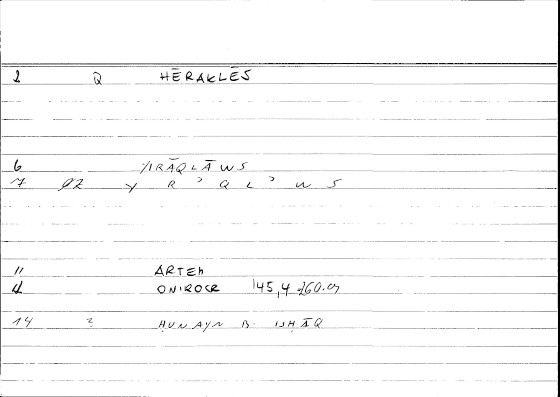 1 Q HĒRAKLĒS
6 YIRĀQLĀWS
7 92 Y R ʾ Q L ʾ W S
11 ARTEM
12 ONIROCR 145,4
14 2 ḤUNAYN B. ISḤĀQ